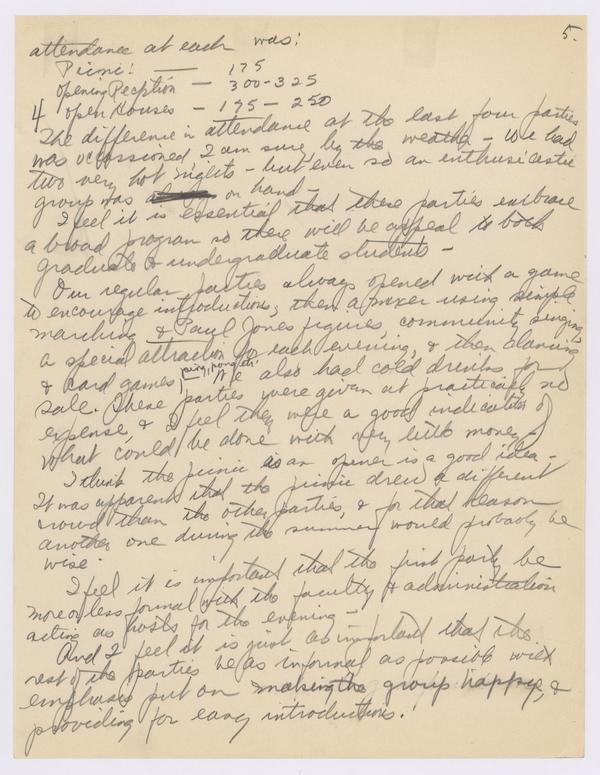 5.
attendance at each was:
Picnic! — 175
opening Reception — 300-325
4 open Houses — 195 - 250
The difference in attendance at the last four parties
was occassioned, I am sure, by the weather - We had
two very hot nights - but even so an enthusiastic
group was on hand -
I feel it is essential that these parties embrace
a broad program so there will be appeal to both
graduate & undergraduate students -
Our regular parties always opened with a game
to encourage introductions, then a mixer using simple
marching & Paul Jones figures, community singing,
a special attraction for each evening, & then dancing
& card games, ping pong etc. We also had cold drinks for
sale. These parties were given at practically no
expense, & I feel they were a good indication of
what could be done with very little money -
I think the picnic as an opener is a good idea -
It was apparent that the picnic drew a different
crowd than the other parties, & for that reason
another one during the summer would probably be
wise.
I feel it is important that the first party be
more or less formal with the faculty & administration
acting as hosts for the evening -
And I feel it is just as important that the
rest of the parties be as informal as possible with
emphasis put on making the group happy, &
providing for easy introductions.